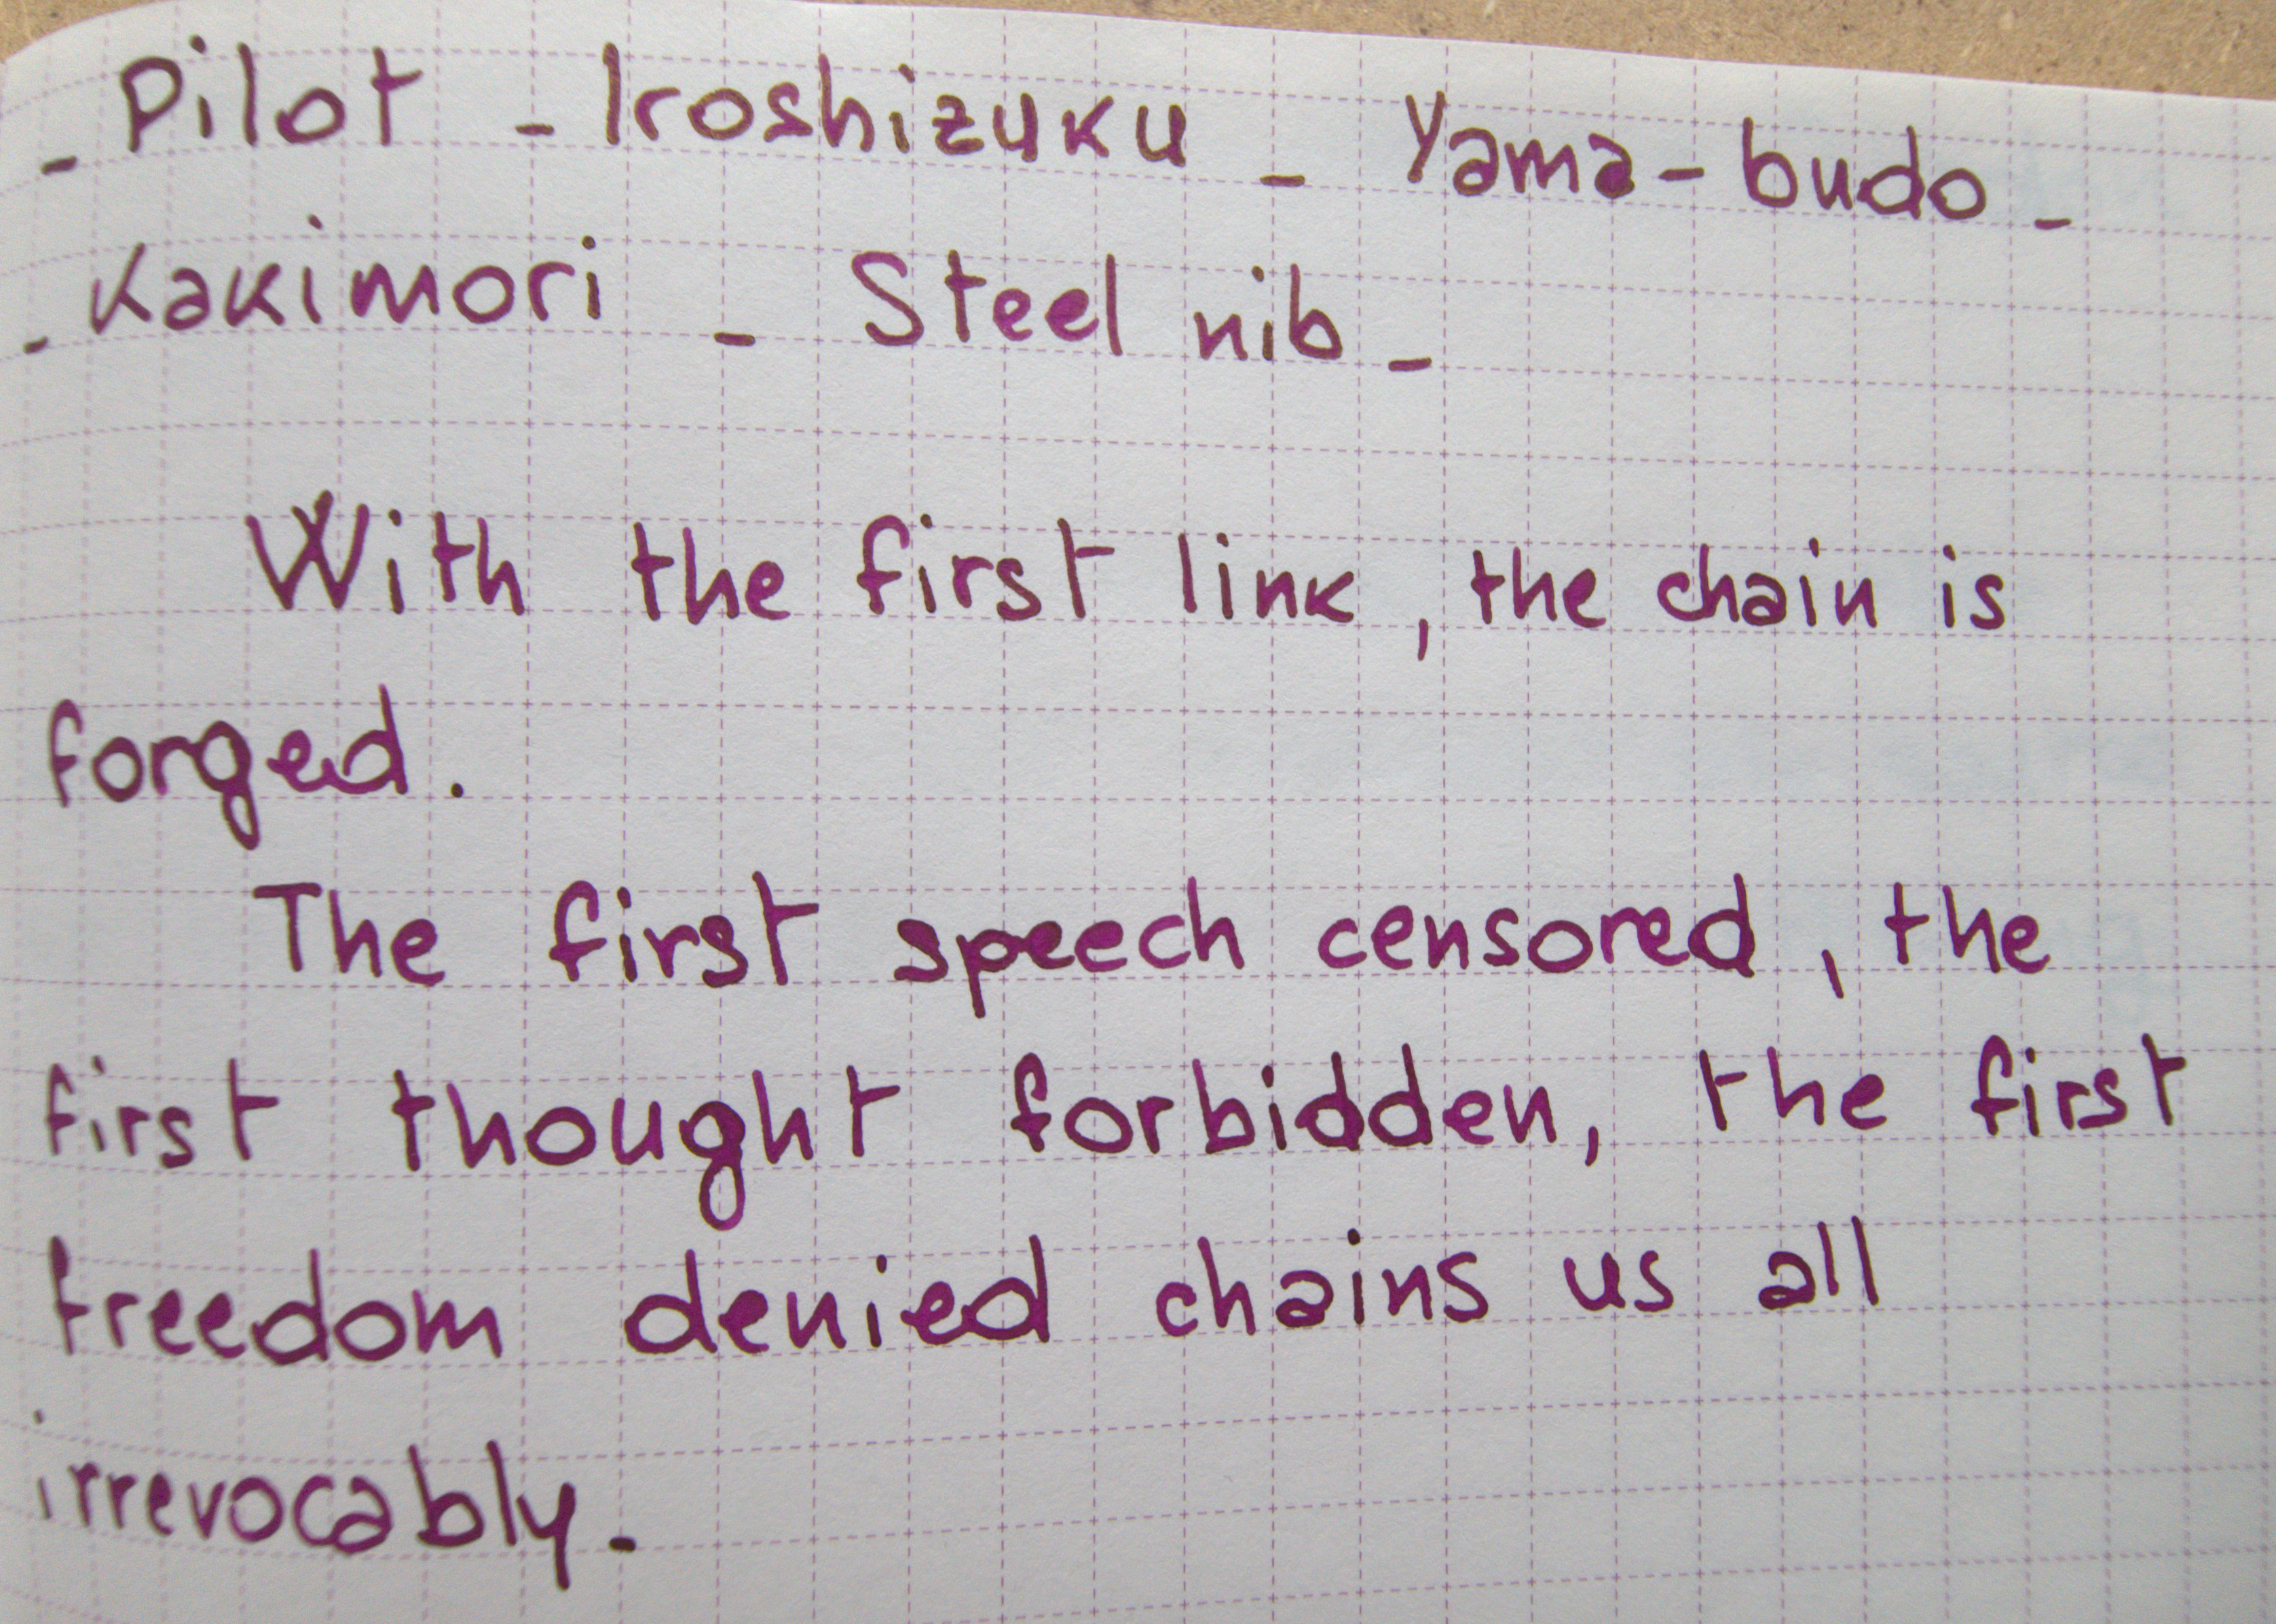 - Pilot - Iroshizuku - Yama-budo -
- Kakimori - Steel nib -
With the first link, the chain is
forged.
The first speech censored, the
first thought forbidden, the first
freedom denied chains us all
irrevocably.